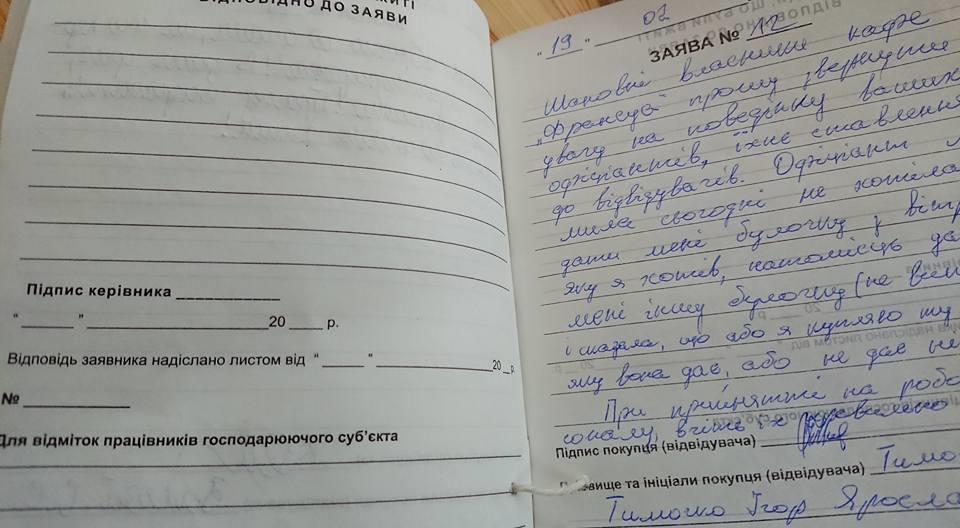 ВІДПОВІДНО ДО ЗАЯВИ
Підпис керівника
" " 20 р.
Відповідь заявника надіслано листом від " " 20 р.
№
Для відміток працівників господарюючого суб'єкта
"19" 02
ЗАЯВА № 12
Шановні власники кафе
"Франсуа" прошу звернути
увагу на поведінку ваших
офіціантів, їхнє ставлення
до відвідувачів. Офіціант
мила сьогодні не хотіла
дати мені булочку з
яку я хотів, натомість
мені іншу булочку (не
і сказала, що або я купляю ту
яку вона дає, або не дає
При прийнятті на
вчіть їх
Підпис покупця (відвідувача)
та ініціали покупця (відвідувача)
Тимошо Ігор